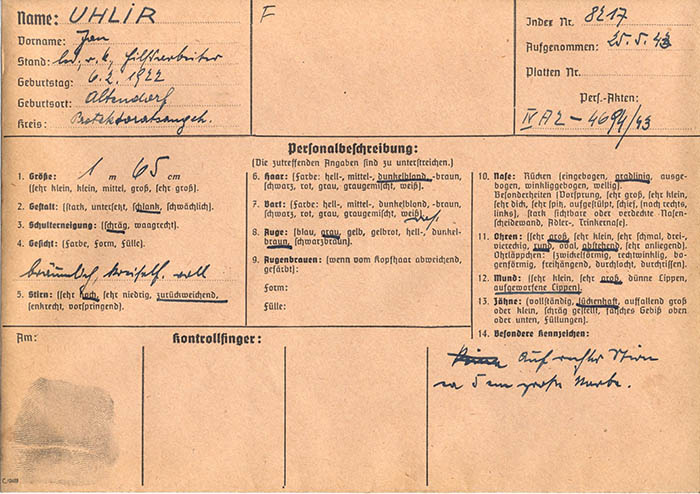 Name: UHLIR
Vorname: Jan
Stand: led, r. k., Hilfsarbeiter
Geburtstag: 6.2.1922
Geburtsort: Altendorf
Kreis: Protektoratsangeh.
F
Index Nr. 8217
Aufgenommen: 25.5.43
Platten Nr.
Pers.-Akten:
IV A 2 - 4694/43
Personalbeschreibung:
(Die zutreffenden Angaben sind zu unterstreichen.)
1. Größe: 1 m 65 cm
(sehr klein, klein, mittel, groß, sehr groß).
2. Gestalt: (stark, untersetzt, schlank, schwächlich).
3. Schulterneigung: (schräg, waagrecht).
4. Gesicht: (Farbe, Form, Fülle).
bräunlich, voll
5. Stirn: (sehr hoch, sehr niedrig, zurückweichend,
senkrecht, vorspringend).
6. Haar: (Farbe: hell-, mittel-, dunkelblond, -braun,
schwarz, rot, grau, graugemischt, weiß).
7. Bart: (Farbe: hell-, mittel-, dunkelblond, -braun,
schwarz, rot, grau, graugemischt, weiß).
8. Auge: (blau, grau, gelb, gelbrot, hell-, dunkel-
braun, schwarzbraun).
9. Augenbrauen: (wenn vom Kopfhaar abweichend,
gefärbt):
Form:
Fülle:
10. Nase: Rücken (eingebogen, gradlinig, ausge-
bogen, winkliggebogen, wellig).
Besonderheiten (Vorsprung, sehr groß, sehr klein,
sehr dick, sehr spitz, aufgestülpt, schief, (nach rechts,
links), stark sichtbare oder verdeckte Nasen-
scheidewand, Adler-, Trinkernase).
11. Ohren: (sehr groß, sehr klein, sehr schmal, drei-,
viereckig, rund, oval, abstehend, sehr anliegend).
Ohrläppchen: (zwickelförmig, rechtwinklig, bo-
genförmig, freihängend, durchlocht, durchrissen).
12. Mund: (sehr klein, sehr groß, dünne Lippen,
aufgeworfene Lippen).
13. Zähne: (vollständig, lückenhaft, auffallend groß
oder klein, schräg gestellt, falsches Gebiß oben
oder unten, Füllungen).
14. Besondere Kennzeichen:
Keine Auf rechter Stirn
ca 5 cm große Narbe.
Am:
Kontrollfinger: